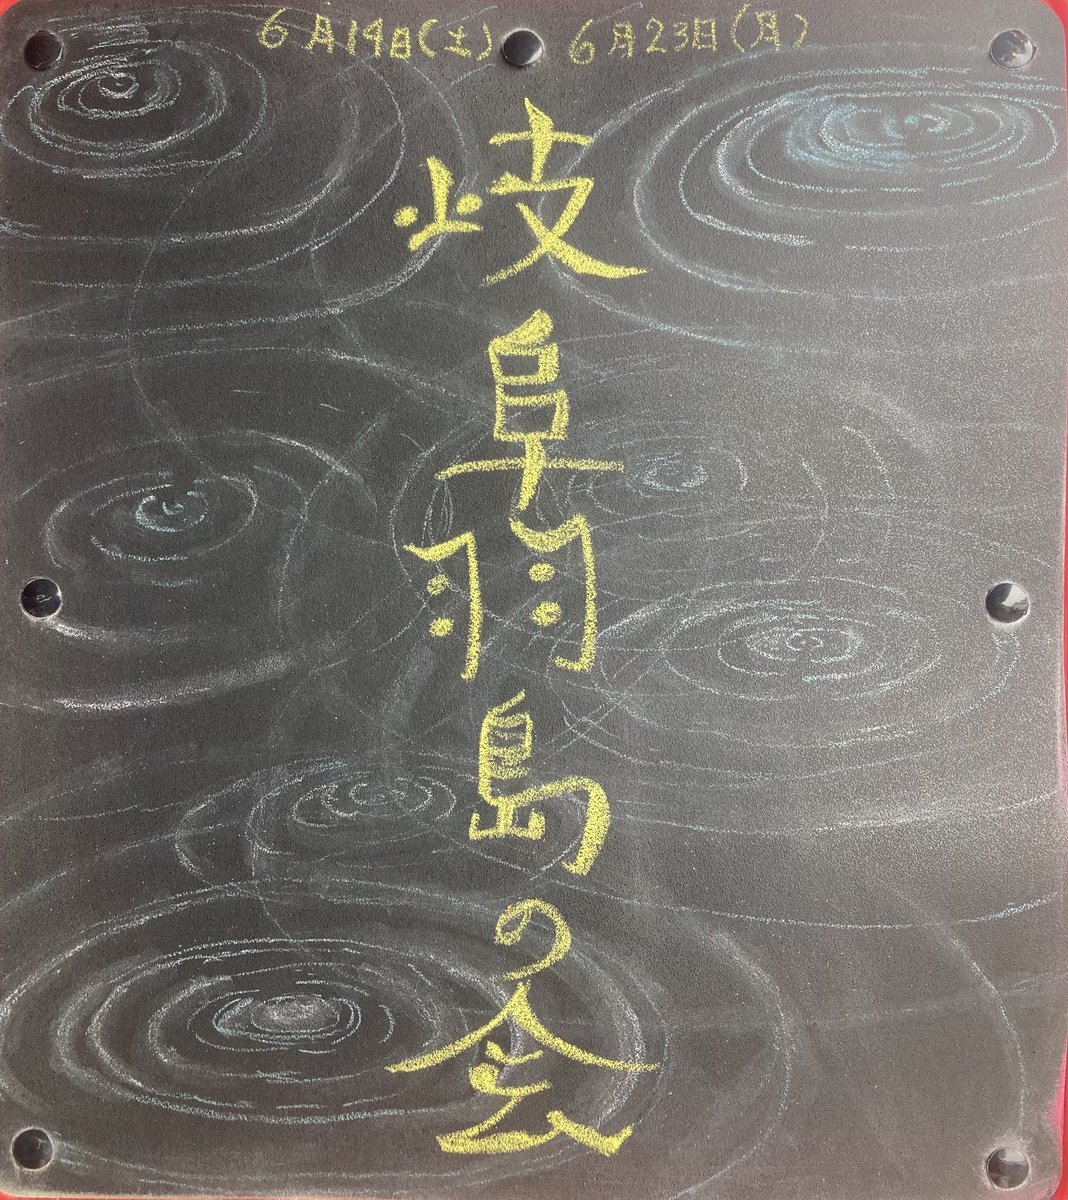 6月14日(土) 6月23日(月)
岐阜羽島の会